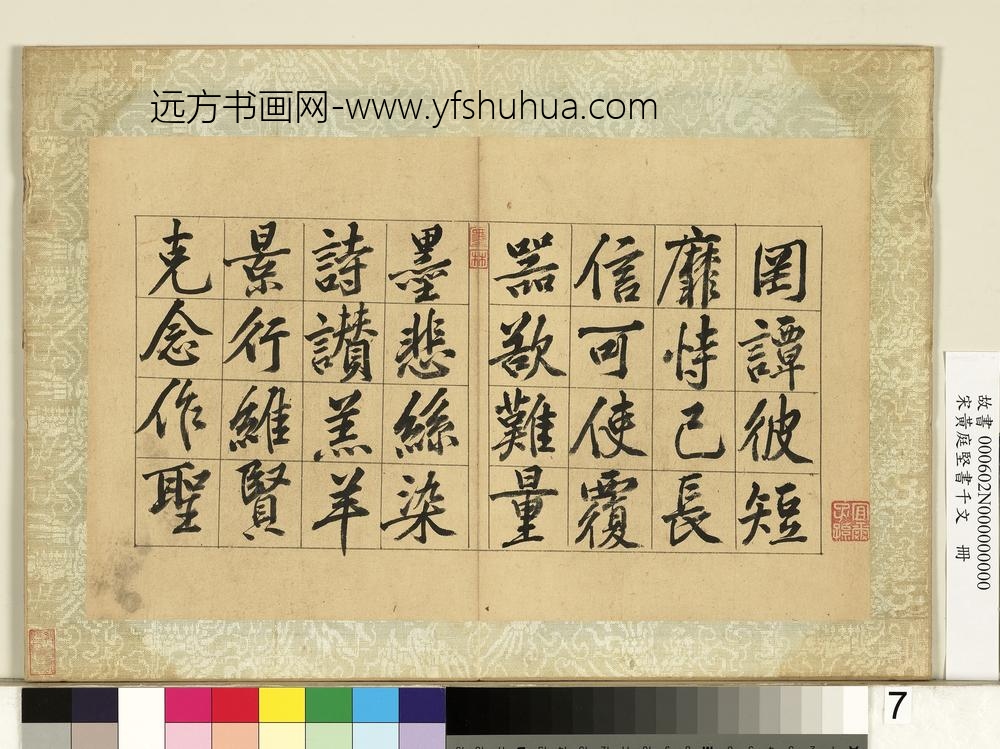 远方书画网-www.yfshuhua.com
罔譚彼短
靡恃己長
信可使覆
器欲難量
墨悲絲染
詩讃羔羊
景行維賢
克念作聖
故書 000602N000000000
宋黃庭堅書千文 冊
7